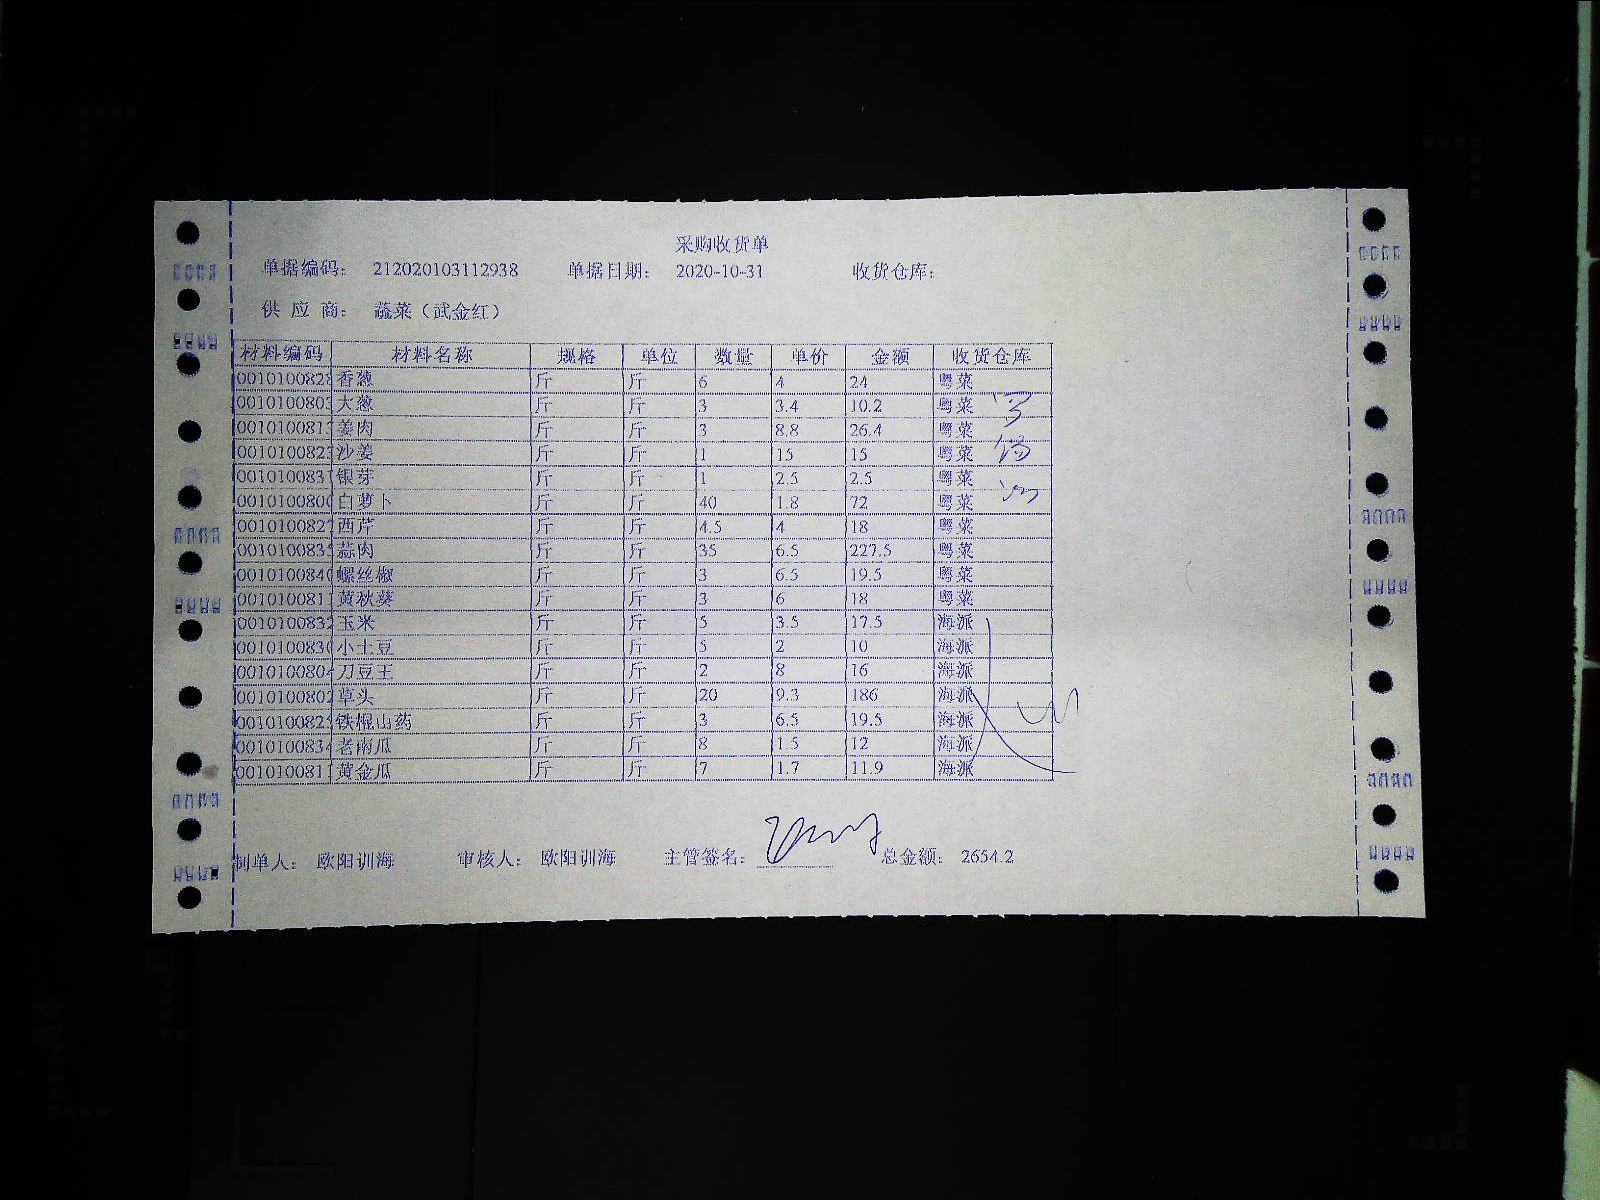 采购收货单
单据编码： 212020103112938 单据日期： 2020-10-31 收货仓库：
供 应 商： 蔬菜（武金红）
材料编码 材料名称 规格 单位 数量 单价 金额 收货仓库
0010100828 香葱 斤 斤 6 4 24 粤菜
0010100803 大葱 斤 斤 3 3.4 10.2 粤菜
001010081 姜肉 斤 斤 3 8.8 26.4 粤菜
001010082 沙姜 斤 斤 1 15 15 粤菜
001010083 银芽 斤 斤 1 2.5 2.5 粤菜
001010080 白萝卜 斤 斤 40 1.8 72 粤菜
001010082 西芹 斤 斤 4.5 4 18 粤菜
001010083 蒜肉 斤 斤 35 6.5 227.5 粤菜
001010084 螺丝椒 斤 斤 3 6.5 19.5 粤菜
001010081 黄秋葵 斤 斤 3 6 18 粤菜
001010083 玉米 斤 斤 5 3.5 17.5 海派
001010083 小土豆 斤 斤 5 2 10 海派
001010080 刀豆王 斤 斤 2 8 16 海派
0010100802 草头 斤 斤 20 9.3 186 海派
001010082 铁棍山药 斤 斤 3 6.5 19.5 海派
001010083 老南瓜 斤 斤 8 1.5 12 海派
001010081 黄金瓜 斤 斤 7 1.7 11.9 海派
制单人： 欧阳训海 审核人： 欧阳训海 主管签名： 总金额： 2654.2